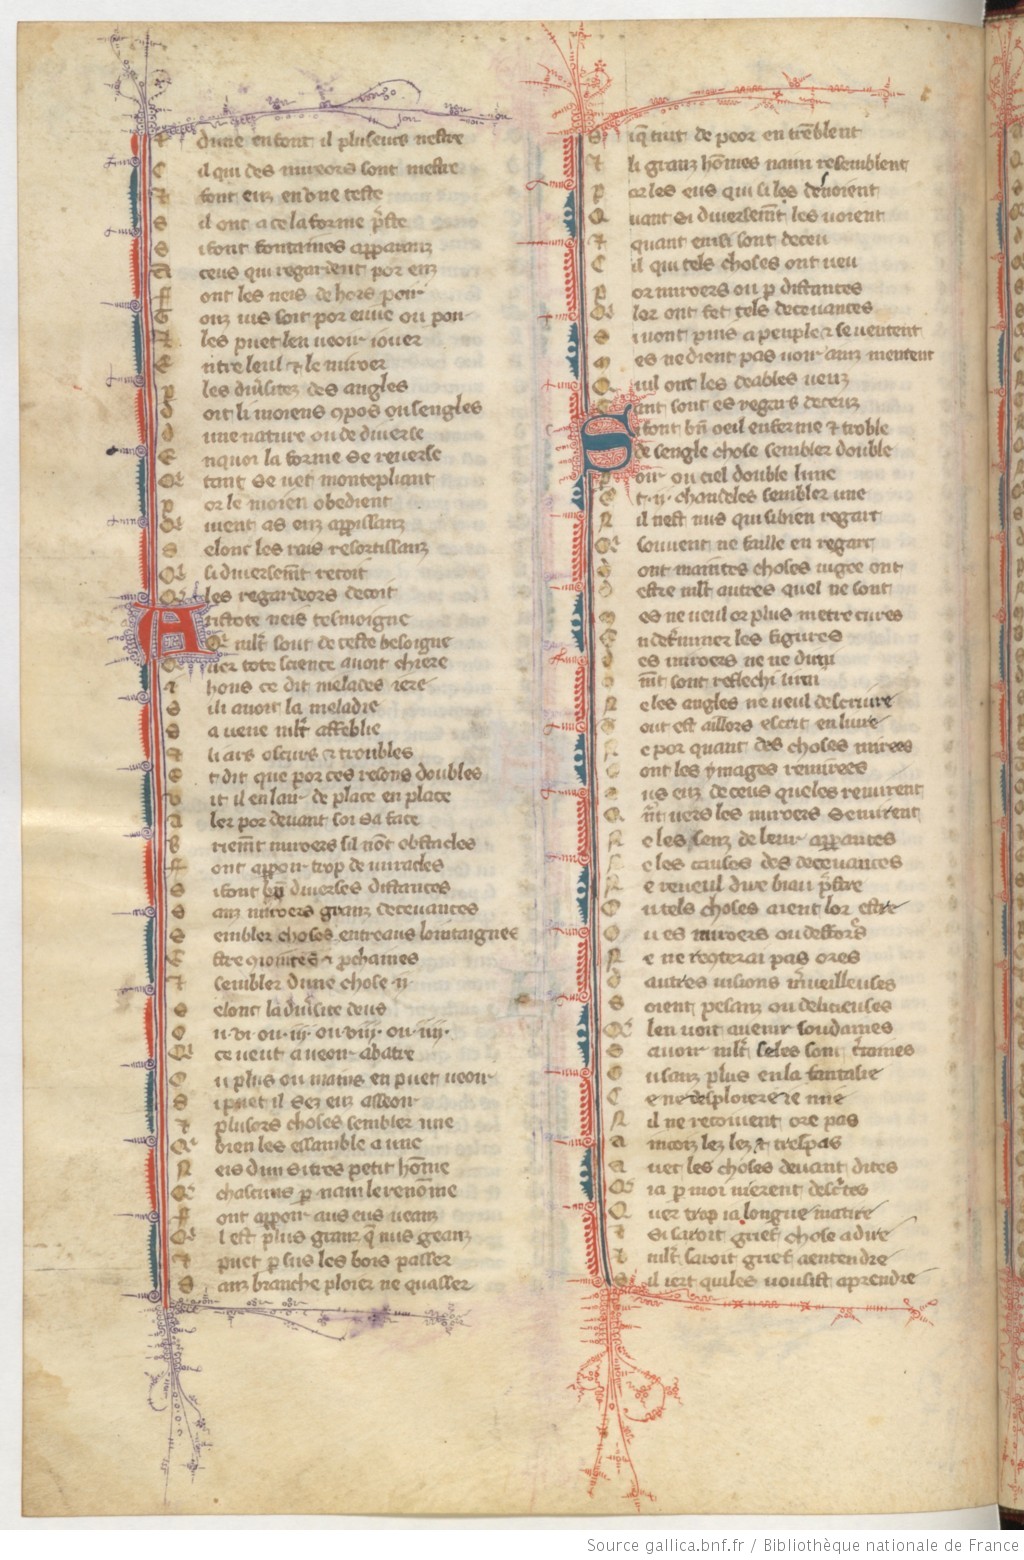 E dune en font il pluseurs nestre
C il qui des mireors sont mestre
E font eux en une teste
S il ont a ce la forme p̄ste
S i font fontaines apparanz
A ceus qui regardent por enz
F ont les neis dehors poir
G ouz vis soit por eaue ou por
T les puet len veoir iouer
E ntre leul ⁊ le miroer
P les diũsitez des angles
D oit li moiens ꝯpos ou sengles
D une nature ou de diverse
E nquoi la forme se reverse
Qͥ tant se vet montepliant
P or le moien obedient
Qͥ vient as eux apparissanz
S elonc les rais resortissanz
Qͥ si diversem̄t recoit
Qͥ les regardeors decoit
A ristote neis tesmoigne
Qͥ ml̄t sout de ceste besoigne
Q uer tote science avoit chiere
. i. hons ce dit malades iere
S i li avoit la maladie
S a veue ml̄t afeblie
. li airs oscurs ⁊ troubles
E t dit que por ces resons doubles
V it il en lair de place en place
A ler por devant soi sa face
B riem̄t miroers sil nōt obstacles
F ont apparoir trop de miracles
S i font bn̄ diverses distances
S anz miroers granz decevances
S embler choses entreaus lointaignes
E stre ꝯiointes ⁊ ꝓchaines
T sembler dune chose .ii.
S elonc la diũsite deus
O u .vi. ou .iii. ou .viii. ou .iiii.
Qͥ ce veut a veoir abatre
O u plus ou mains en puet veoir
S i puet il ses eux asseoir
T plusors choses sembler une
Qͥ bien les essamble a une
N eis dun si tres petit hōme
Qͥ chascuns p nain le renōme
F ont apparoir aus eus veanz
Qͥ l est plus granz q̄ nus geanz
T puet p sus les bois passer
S anz branche ploier ne quasser
S i q̄ tuit de peor en trēblent
T li granz hōmes nain resemblent
P or les eus qui si les devoient
Q uant si diversem̄t les voient
T quant einsi sont deceu
C il qui tels choses ont veu
P or miroers ou p distances
Qͥ lor ont fet tels decevances
S i vont puis a peuple ⁊ se ventent
M es ne dient pas voir ainz mentent
Q uil ont les deables veuz
T ant sont es regars deceuz
S i font bn̄ oeil enferme ⁊ troble
De sengle chose sembler double
P oir ou ciel double lune
E t .ii. chandeles sembler une
N il nest nus qui si bien regart
Qͥ souvent ne faille en regart
D ont maintes choses iugee ont
D estre ml̄t autres quel ne sont
M es ne veul or plus metre cures
E n detminer les figures
D es miroers ne ne dirai
C m̄t sont reflechi li rai
N e les angles ne veul descrivre
T out est aillors escrit en livre
N e por quant des choses mirees
S ont les ymages remirees
A us eux de ceus queles remirent
Q n̄t vers les miroers se virent
N e les senz de leur apparances
N e les causes des decevances
N e reveul dire biau p̄stre
O u tels choses aient lor estre
O u es miroers ou deffors
N e ne recꝫterai pas ores
D autres visions m̄veilleuses
S oient plesanz ou deliteuses
Qͥ len voit avenir soudaines
S avoir ml̄t seles sont foraines
O u sanz plus en la fantasie
C e ne desploiere ie mie
N il ne recovient ore pas
A incoiz les lez ⁊ trespas
A vec les choses devant dites
Qͥ ia p moi nierent descͥtes
Q uer trop ia longue matire
T si seroit grief chose a dire
T ml̄t seroit grief a entendre
S il iert qui les vousist aprendre